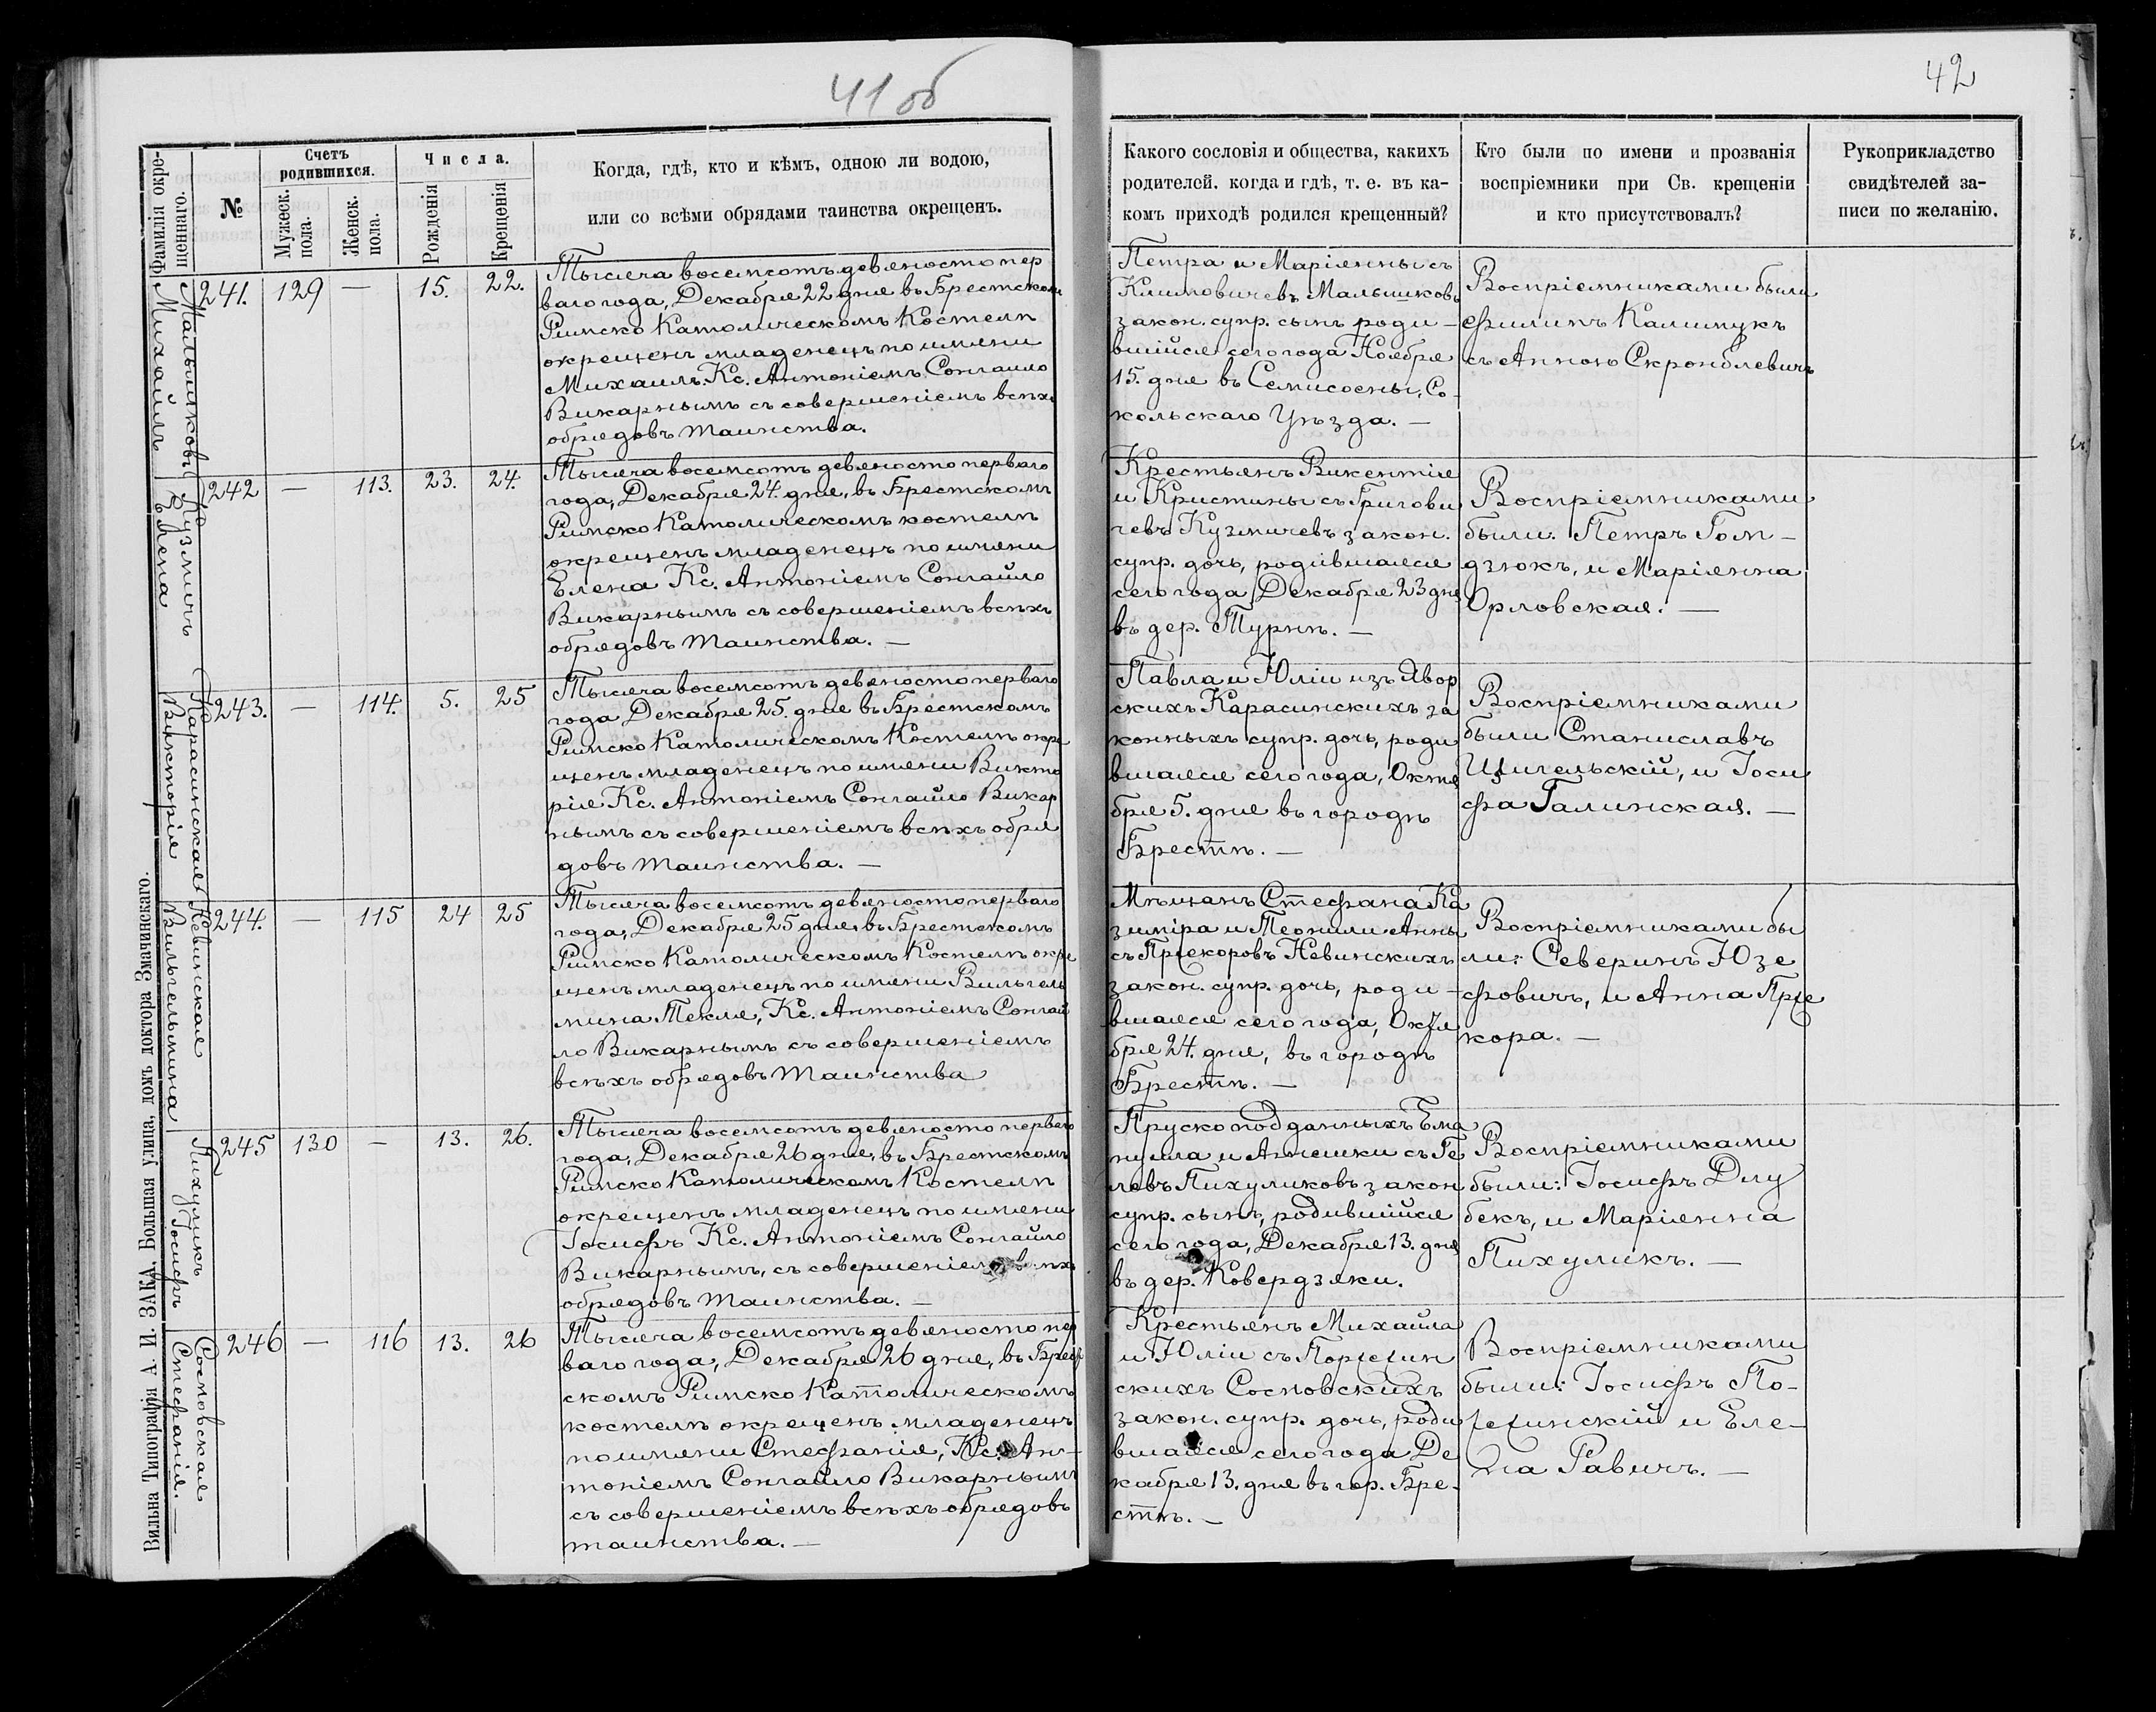 41 об
42
Фамилія окре-
щеннаго.
№
Счетъ
родившихся.
Мужеск.
пола.
Женск.
пола.
Числа.
Рожденія
Крещенія
Когда, гдѣ, кто и кѣмъ, одною ли водою,
или со всѣми обрядами таинства окрещенъ.
Какого сословія и общества, какихъ
родителей. когда и гдѣ, т. е. въ ка-
комъ приходѣ родился крещенный?
Кто были по имени и прозванія
воспріемники при Св. крещеніи
и кто присутствовалъ?
Рукоприкладство
свидѣтелей за-
писи по желанію.
Малышковъ
Михаилъ
241. 129 — 15. 22.
Тысяча восемсотъ девяносто пер
ваго года, Декабря 22 дня въ Брестскомъ
Римско Католическомъ Костелѣ
окрещенъ младенецъ по имени
Михаилъ. Кс. Антоніемъ Сонгайло
Викарнымъ съ совершеніемъ всѣхъ
обрядовъ таинства.
Петра и Маріянны съ
Климовичевъ Малышковъ
закон. супр. сынъ роди-
вшійся сего года Ноября
15. дня въ Семисосны, Со-
кольскаго Уѣзда. —
Воспріемниками были
Филипъ Калишукъ
съ Анною Скронблевичъ
Кузмичъ
Елена
242 — 113. 23. 24.
Тысяча восемсотъ девяносто перваго
года, Декабря 24. дня, въ Брестскомъ
Римско Католическомъ костелѣ
окрещенъ младенецъ по имени
Елена Кс. Антоніемъ Сонгайло
Викарнымъ съ совершеніемъ всѣхъ
обрядовъ таинства. —
Крестьянъ Викентія
и Кристины съ Григови
чевъ Кузмичевъ закон.
супр. дочь, родившаяся
сего года Декабря 23 дня
въ дер. Турнѣ. —
Воспріемниками
были: Петръ Гом-
дзюкъ, и Маріянна
Орловская. —
Карасинская
Викторія
243. — 114. 5. 25
Тысяча восемсотъ девяносто перваго
года Декабря 25. дня въ Брестскомъ
Римско Католическомъ Костелѣ окре
щенъ младенецъ по имени Викто
рія Кс. Антоніемъ Сонгайло Викар
нымъ съ совершеніемъ всѣхъ обря
довъ таинства. —
Павла и Юліи изъ Явор
скихъ Карасинскихъ за
конныхъ супр. дочь, роди
вшаяся сего года, Октя
бря 5. дня въ городѣ
Брестѣ. —
Воспріемниками
были Станиславъ
Цыгельскій, и Іоси
фа Галинская. —
Невинская
Вильгельмина
244. — 115 24 25
Тысяча восемсотъ девяносто перваго
года, Декабря 25 дня, въ Брестскомъ
Римско Католическомъ Костелѣ окре
щенъ младенецъ по имени Вильгель
мина Текля, Кс. Антоніемъ Сонгай
ло Викарнымъ съ совершеніемъ
всѣхъ обрядовъ таинства
Мѣщанъ Стефана Ка
зиміра и Теофили Анны
съ Пржекоровъ Невинскихъ
закон. супр. дочь, роди-
вшаяся сего года, Октя
бря 24. дня, въ городѣ
Брестѣ. —
Воспріемниками бы
ли: Северинъ Юзе
фовичъ, и Анна Прже
кора. —
Пихуликъ
Іосифъ
245 130 — 13. 26.
Тысяча восемсотъ девяносто перваго
года, Декабря 26 дня, въ Брестскомъ
Римско Католическомъ Костелѣ
окрещенъ младенецъ по имени
Іосифъ Кс. Антоніемъ Сонгайло
Викарнымъ, съ совершеніемъ всѣхъ
обрядовъ таинства. —
Прускоподданныхъ Ема
нуила и Анешки съ Ге
левъ Пихуликовъ закон
супр. сынъ, родившійся
сего года, Декабря 13. дня
въ дер. Ковердзяки.
Воспріемниками
были: Іосифъ Длу
бекъ, и Маріянна
Пихуликъ. —
Сосновская
Стефанія. —
246 — 116 13. 26
Тысяча восемсотъ девяносто пер
ваго года, Декабря 26 дня, въ Брест
скомъ Римско Католическомъ
костелѣ окрещенъ младенецъ
по имени Стефанія, Кс. Ан-
тоніемъ Сонгайло Викарнымъ
съ совершеніемъ всѣхъ обрядовъ
таинства. —
Крестьянъ Михаила
и Юліи съ
скихъ Сосновскихъ
закон. супр. дочь, роди
вшаяся сего года Де
кабря 13. дня въ гор. Бре-
стѣ. —
Воспріемниками
были: Іосифъ По-
и Еле-
на Равичъ. —
Вильна Типографія А. И. ЗАКА. Большая улица, домъ доктора Змачинскаго.